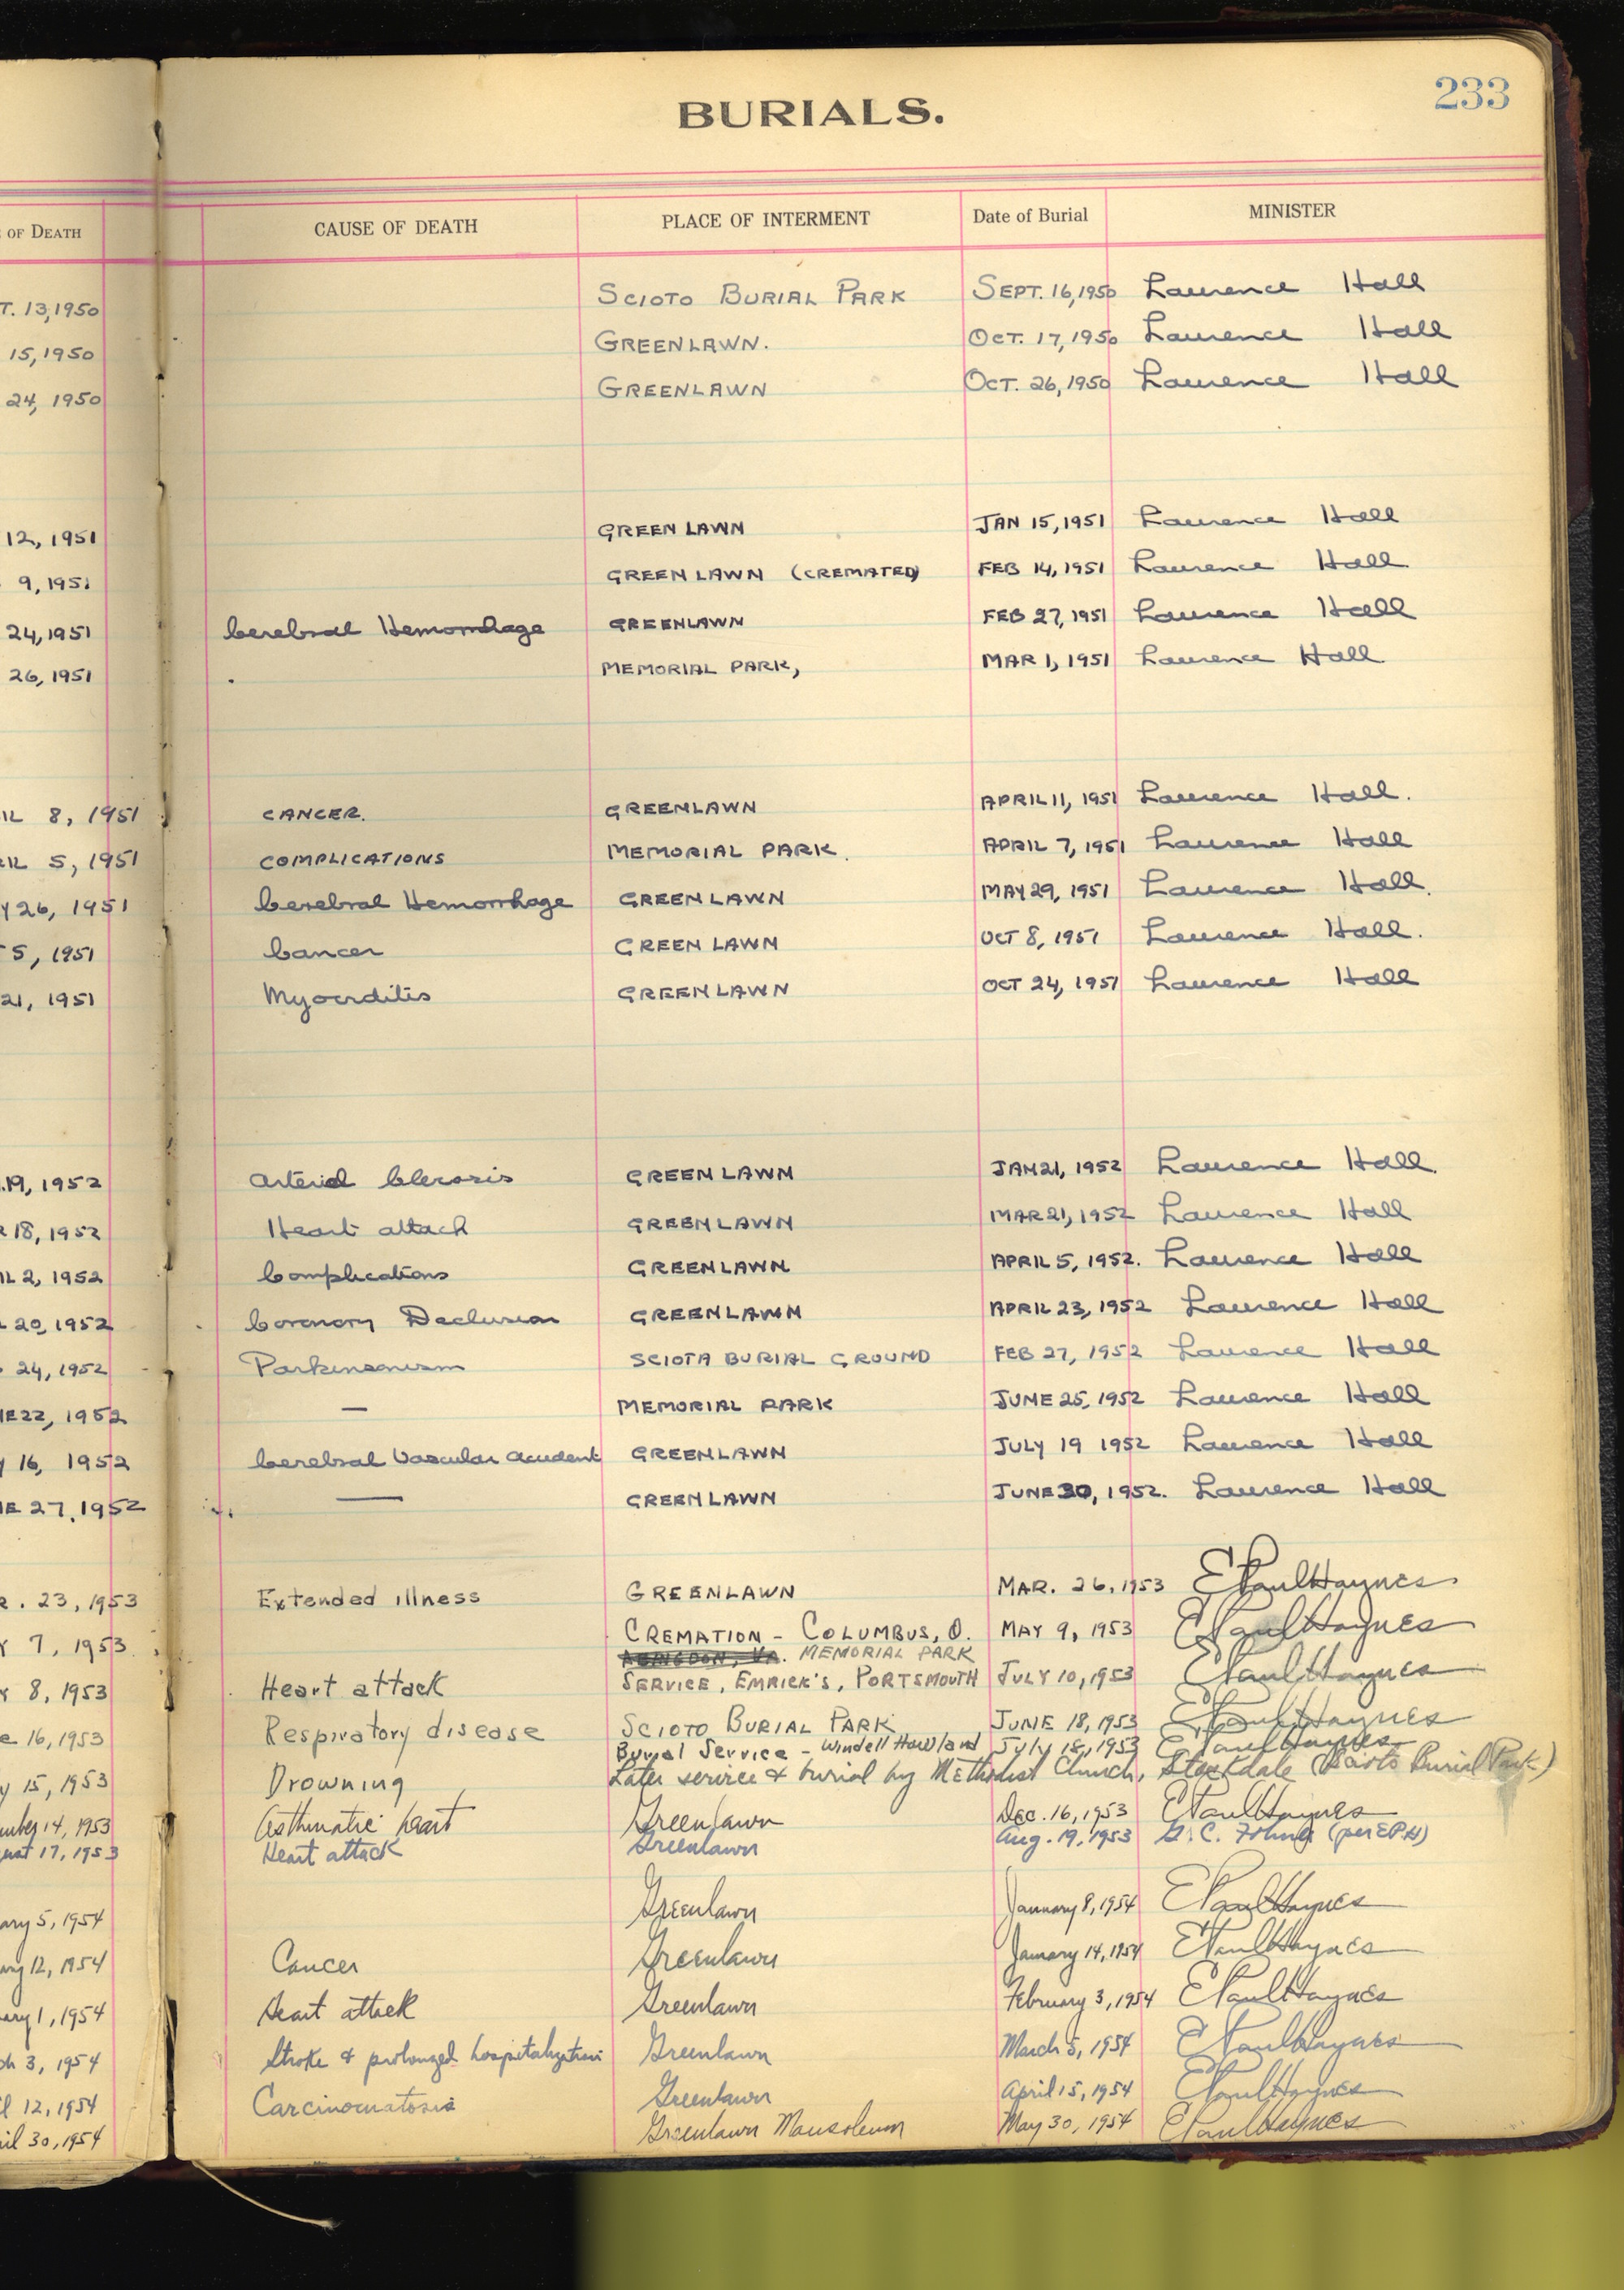 233
BURIALS.
OF DEATH CAUSE OF DEATH PLACE OF INTERMENT Date of Burial MINISTER
T. 13,1950 SCIOTO BURIAL PARK SEPT. 16,1950 Laurence Hall
15,1950 GREENLAWN. OCT. 17,1950 Laurence Hall
24, 1950 GREENLAWN OCT. 26,1950 Laurence Hall
12, 1951 GREEN LAWN JAN 15,1951 Laurence Hall
9,1951 GREEN LAWN (CREMATED) FEB 14,1951 Laurence Hall
24,1951 Cerebral Hemorrhage GREENLAWN FEB 27,1951 Laurence Hall
26,1951 MEMORIAL PARK, MAR 1, 1951 Laurence Hall
IL 8, 1951 CANCER. GREENLAWN APRIL 11, 1951 Laurence Hall.
RIL 5, 1951 COMPLICATIONS MEMORIAL PARK. APRIL 7, 1951 Laurence Hall
Y 26, 1951 Cerebral Hemorrhage GREEN LAWN MAY 29, 1951 Laurence Hall.
5, 1951 Cancer GREEN LAWN OCT 8, 1951 Laurence Hall.
21, 1951 Myocrditis GREENLAWN OCT 24, 1951 Laurence Hall
19, 1952 Arterial Clerosis GREENLAWN JAN 21, 1952 Laurence Hall.
R 18, 1952 Heart attack GREENLAWN MAR 21, 1952 Laurence Hall
IL 2, 1952 Complications GREENLAWN APRIL 5, 1952. Laurence Hall
20, 1952 Coronory Occlusion GREENLAWN APRIL 23, 1952 Laurence Hall
24, 1952 Parkinsonism SCIOTA BURIAL GROUND FEB 27, 1952 Laurence Hall
NE 22, 1952 — MEMORIAL PARK JUNE 25, 1952 Laurence Hall
Y 16, 1952 Cerebral Vascular Accident GREENLAWN JULY 19 1952 Laurence Hall
NE 27, 1952 — GREENLAWN JUNE 30, 1952. Laurence Hall
R. 23, 1953 Extended illness GREENLAWN MAR. 26, 1953 E Paul Haynes
Y 7, 1953. CREMATION - COLUMBUS, O. MAY 9, 1953 E Paul Haynes
ABINGDON, VA. MEMORIAL PARK
Y 8, 1953 Heart attack SERVICE, EMRICK'S, PORTSMOUTH JULY 10, 1953 E Paul Haynes
e 16, 1953 Respiratory disease SCIOTO BURIAL PARK JUNE 18, 1953 E Paul Haynes
Burial Service - Windell Howland July 18, 1953 E Paul Haynes
y 15, 1953 Drowning Later service & burial by Methodist Church, Stockdale (Scioto Burial Park)
mber 14, 1953 Asthmatic heart Greenlawn Dec. 16, 1953 E Paul Haynes
ust 17, 1953 Heart attack Greenlawn Aug. 19, 1953 G. C. (per EPH)
ary 5, 1954 Greenlawn January 8, 1954 E Paul Haynes
ary 12, 1954 Cancer Greenlawn January 14, 1954 E Paul Haynes
ary 1, 1954 Heart attack Greenlawn February 3, 1954 E Paul Haynes
ch 3, 1954 Stroke & prolonged hospitalization Greenlawn March 5, 1954 E Paul Haynes
il 12, 1954 Carcinomatosis Greenlawn April 15, 1954 E Paul Haynes
ril 30, 1954 Greenlawn Mausoleum May 30, 1954 E Paul Haynes